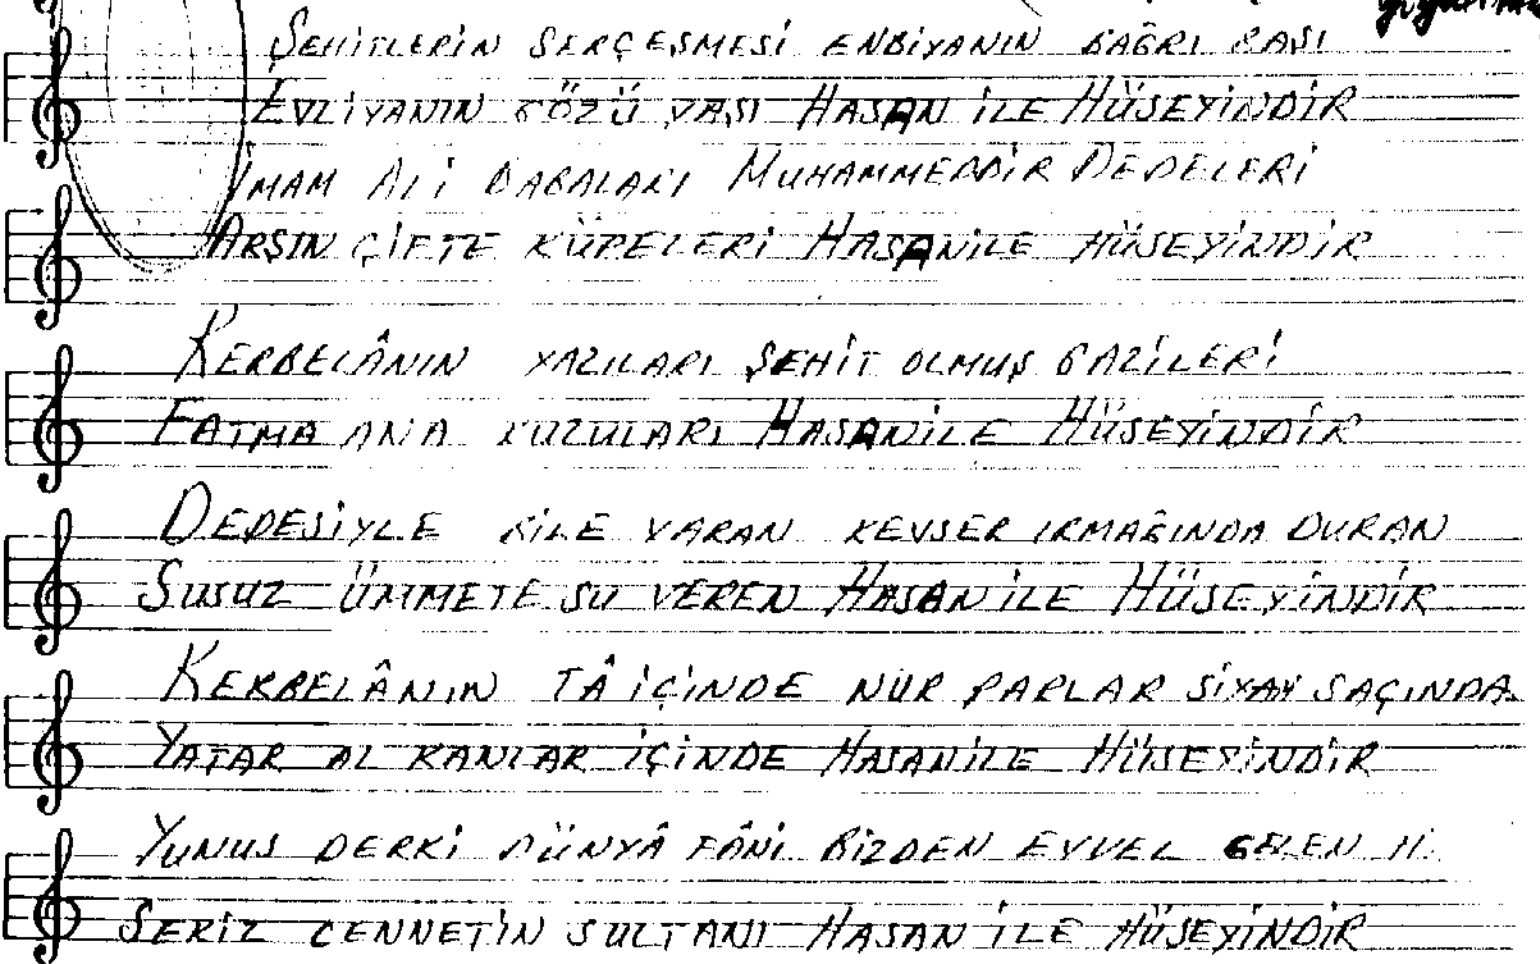 ŞEHİTLERİN SERÇEŞMESİ ENBİYANIN BAĞRI BAŞI
EVLİYANIN GÖZÜ YAŞI HASAN İLE HÜSEYİNDİR
İMAM ALİ BABALARI MUHAMMEDDİR DEDELERİ
ARŞIN ÇİFTE KÜPELERİ HASANİLE HÜSEYİNDİR
KERBELÂNIN YAZILARI ŞEHİT OLMUŞ GAZİLERİ
FATMA ANA KUZULARI HASANİLE HÜSEYİNDİR
DEDESİYLE BİLE VARAN KEVSER IRMAĞINDA DURAN
SUSUZ ÜMMETE SU VEREN HASAN İLE HÜSEYİNDİR
KERBELÂNIN TÂ İÇİNDE NUR PARLAR SİYAH SAÇINDA
YATAR AL KANLAR İÇİNDE HASANİLE HÜSEYİNDİR
YUNUS DERKİ DÜNYÂ FÂNİ BİZDEN EVVEL GELEN
SEKİZ CENNETİN SULTANI HASAN İLE HÜSEYİNDİR